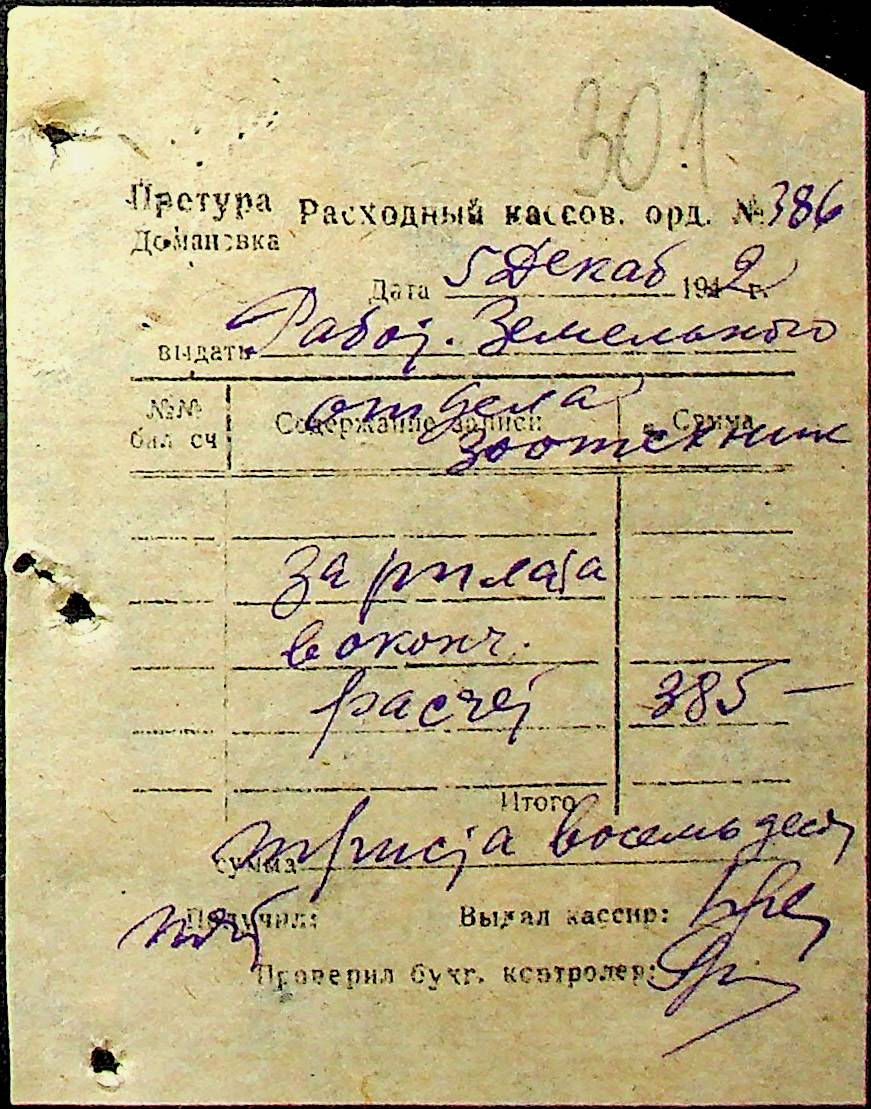 301
Претура Расходный кассов. орд. № 386
Домановка
Дата 5 Декаб 1942 г.
выдать Работ. Земельного
отдела
№№ бал сч Содержание записи Сумма
зоотехник
зарплата
в оконч.
расчет 385 —
Итого
Сумма триста восемьдесят
пять
Получил: Выдал кассир:
Проверил бухг. контролер: